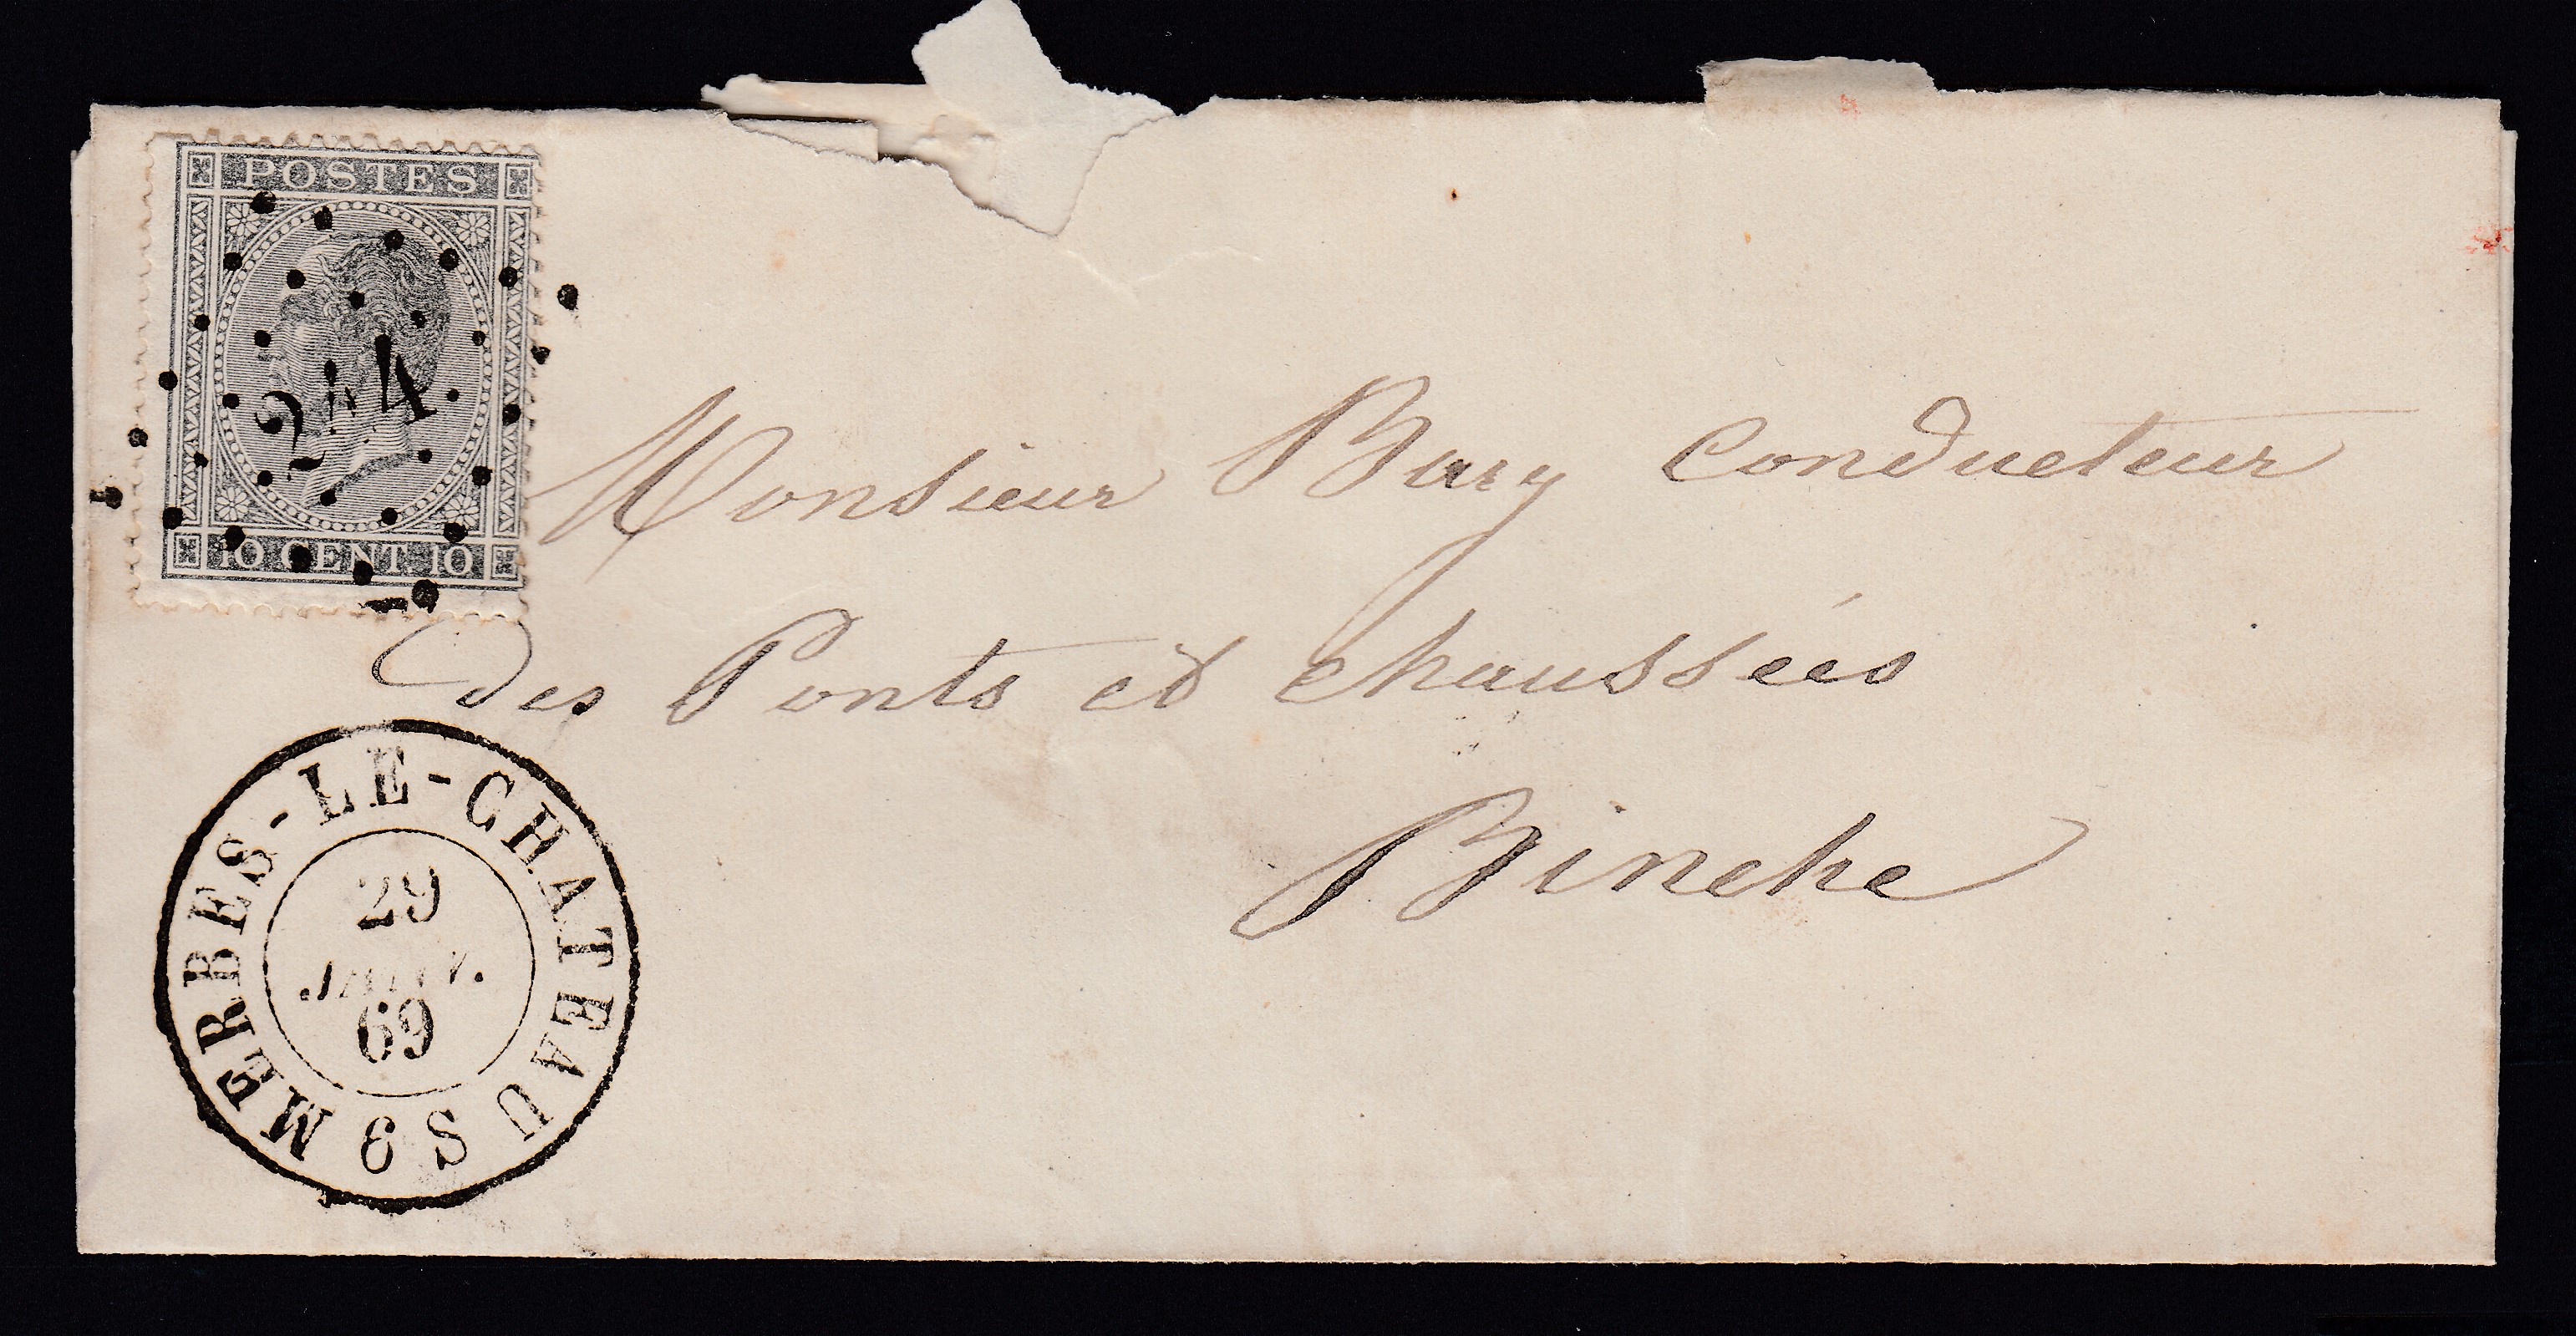 POSTES
244
10 CENT. 10
Monsieur Bary Conducteur
des Ponts et chaussées
Binche
MERBES-LE-CHATEAU
29
JANV.
69
8 S